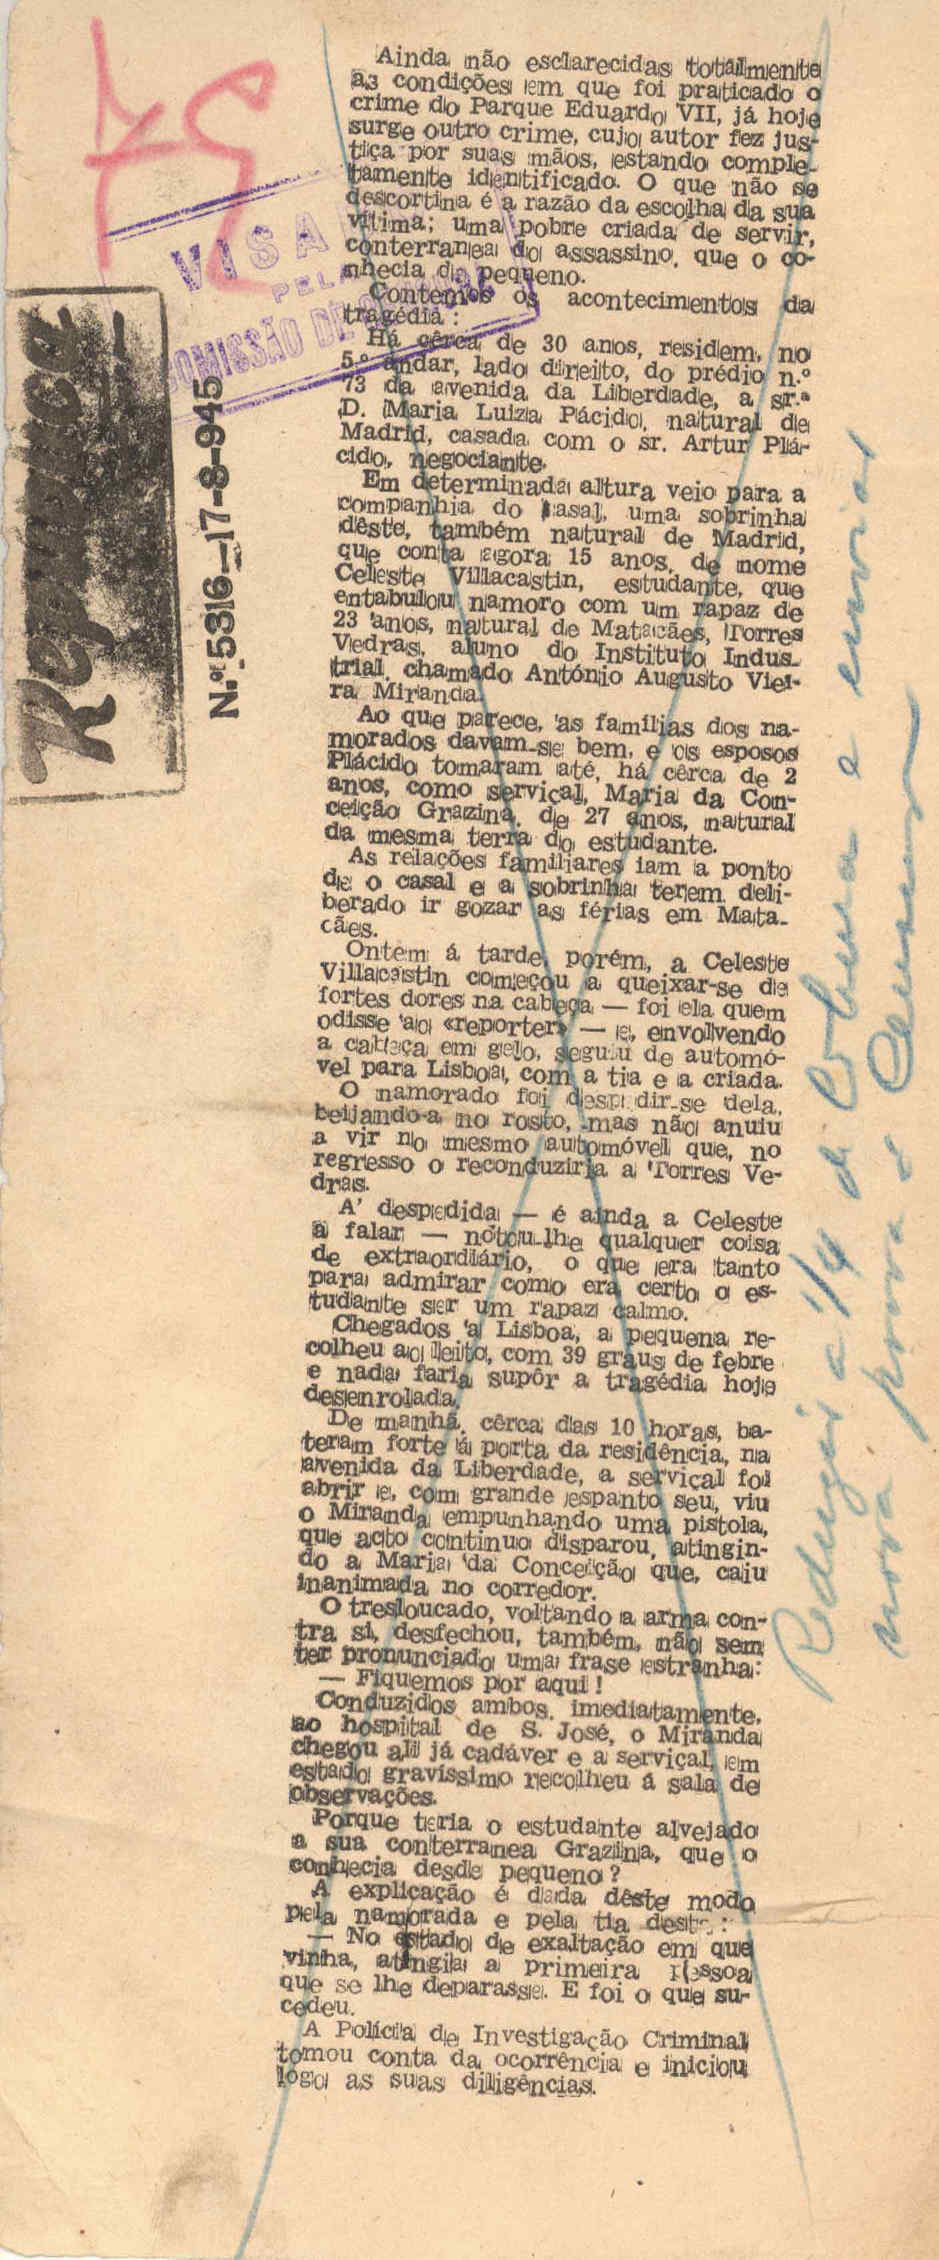 VISADO
PELA
COMISSÃO DE CENSURA
República
N.º 5316—17-8-945
Ainda não esclarecidas totalmente
as condições em que foi praticado o
crime do Parque Eduardo VII, já hoje
surge outro crime, cujo autor fez jus-
tiça por suas mãos, estando comple-
tamente identificado. O que não se
descortina é a razão da escolha da sua
vítima; uma pobre criada de servir,
conterranea do assassino, que o co-
nhecia de pequeno.
Contemos os acontecimentos da
tragédia:
Há cêrca de 30 anos, residem, no
5.º andar, lado direito, do prédio n.º
73 da avenida da Liberdade, a sr.ª
D. Maria Luiza Plácido, natural de
Madrid, casada com o sr. Artur Plá-
cido, negociante.
Em determinada altura veio para a
companhia do casal, uma sobrinha
dêste, também natural de Madrid,
que conta agora 15 anos, de nome
Celeste Villacastin, estudante, que
entabulou namoro com um rapaz de
23 anos, natural de Matacães, Torres
Vedras, aluno do Instituto Indus-
trial, chamado António Augusto Viei-
ra Miranda.
Ao que parece, as famílias dos na-
morados davam-se bem, e os esposos
Plácido tomaram até, há cêrca de 2
anos, como serviçal, Maria da Con-
ceição Grazina, de 27 anos, natural
da mesma terra do estudante.
As relações familiares iam a ponto
de o casal e a sobrinha terem deli-
berado ir gozar as férias em Mata-
cães.
Ontem á tarde, porém, a Celeste
Villacastin começou a queixar-se de
fortes dores na cabeça — foi ela quem
odisse ao «reporter» — e, envolvendo
a cabeça em gelo, seguiu de automó-
vel para Lisboa, com a tia e a criada.
O namorado foi despedir-se dela,
beijando-a no rosto, mas não anuiu
a vir no mesmo automóvel que, no
regresso o reconduziria a Torres Ve-
dras.
A' despedida — é ainda a Celeste
a falar — notou-lhe qualquer coisa
de extraordiário, o que era tanto
para admirar como era certo o es-
tudante ser um rapaz calmo.
Chegados a Lisboa, a pequena re-
colheu ao leito, com 39 graus de febre
e nada faria supôr a tragédia hoje
desenrolada.
De manhã, cêrca das 10 horas, ba-
teram forte á porta da residência, na
avenida da Liberdade, a serviçal foi
abrir e, com grande espanto seu, viu
o Miranda empunhando uma pistola,
que acto continuo disparou, atingin-
do a Maria da Conceição que, caiu
inanimada no corredor.
O tresloucado, voltando a arma con-
tra si, desfechou, também, não sem
ter pronunciado uma frase estranha:
— Fiquemos por aqui!
Conduzidos ambos, imediatamente,
ao hospital de S. José, o Miranda
chegou ali já cadáver e a serviçal, em
estado gravíssimo recolheu á sala de
observações.
Porque teria o estudante alvejado
a sua conterranea Grazina, que o
conhecia desde pequeno?
A explicação é dada dêste modo
pela namorada e pela tia deste:
— No estado de exaltação em que
vinha, atingia a primeira pessoa
que se lhe deparasse. E foi o que su-
cedeu.
A Polícia de Investigação Criminal
tomou conta da ocorrência e iniciou
lógo as suas diligências.
Reduzir a 1/4 de coluna e enviar
nova prova á Censura